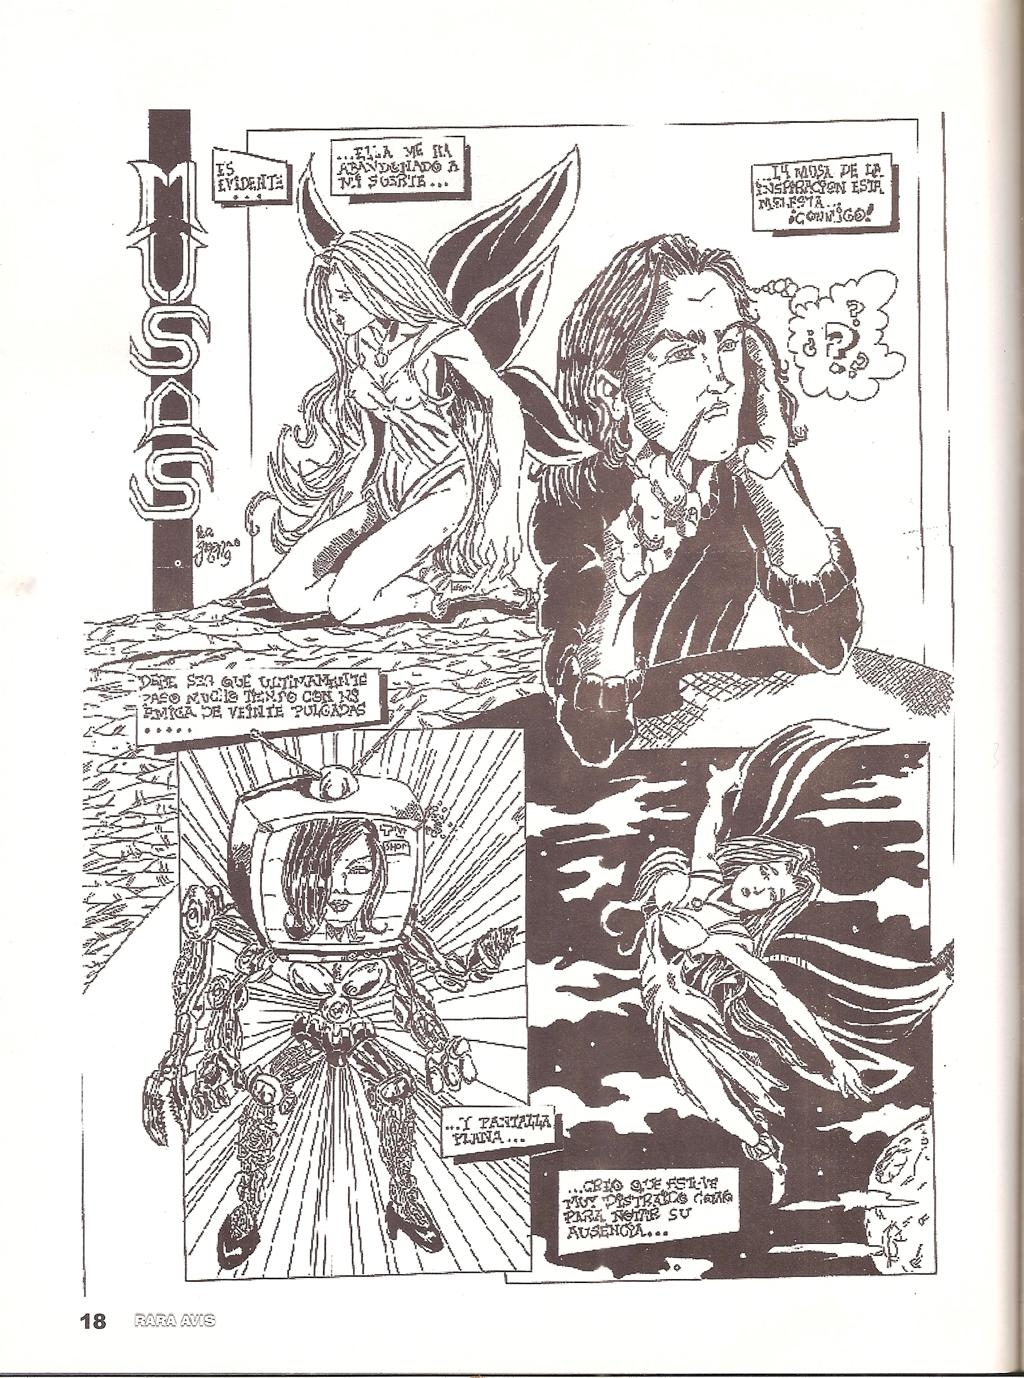 MUSAS
ES
EVIDENTE
...
...ELLA ME HA
ABANDONADO A
MI SUERTE...
...LA MUSA DE LA
INSPIRACION ESTA
MOLESTA...
¡CONMIGO!
???
POR
DEBE SER QUE ULTIMAMENTE
PASO MUCHO TIEMPO CON MI
AMIGA DE VEINTE PULGADAS
.....
TV
SHOP
...Y PANTALLA
PLANA...
...CREO QUE ESTUVE
MUY DISTRAIDO COMO
PARA NOTAR SU
AUSENCIA...
18 RARA AVIS